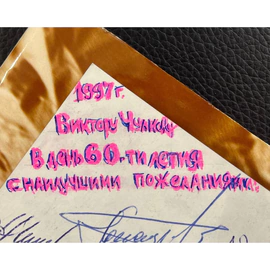 1997 г.
Виктору Чулкову
В день 60-ти летия
с наилучшими пожеланиями